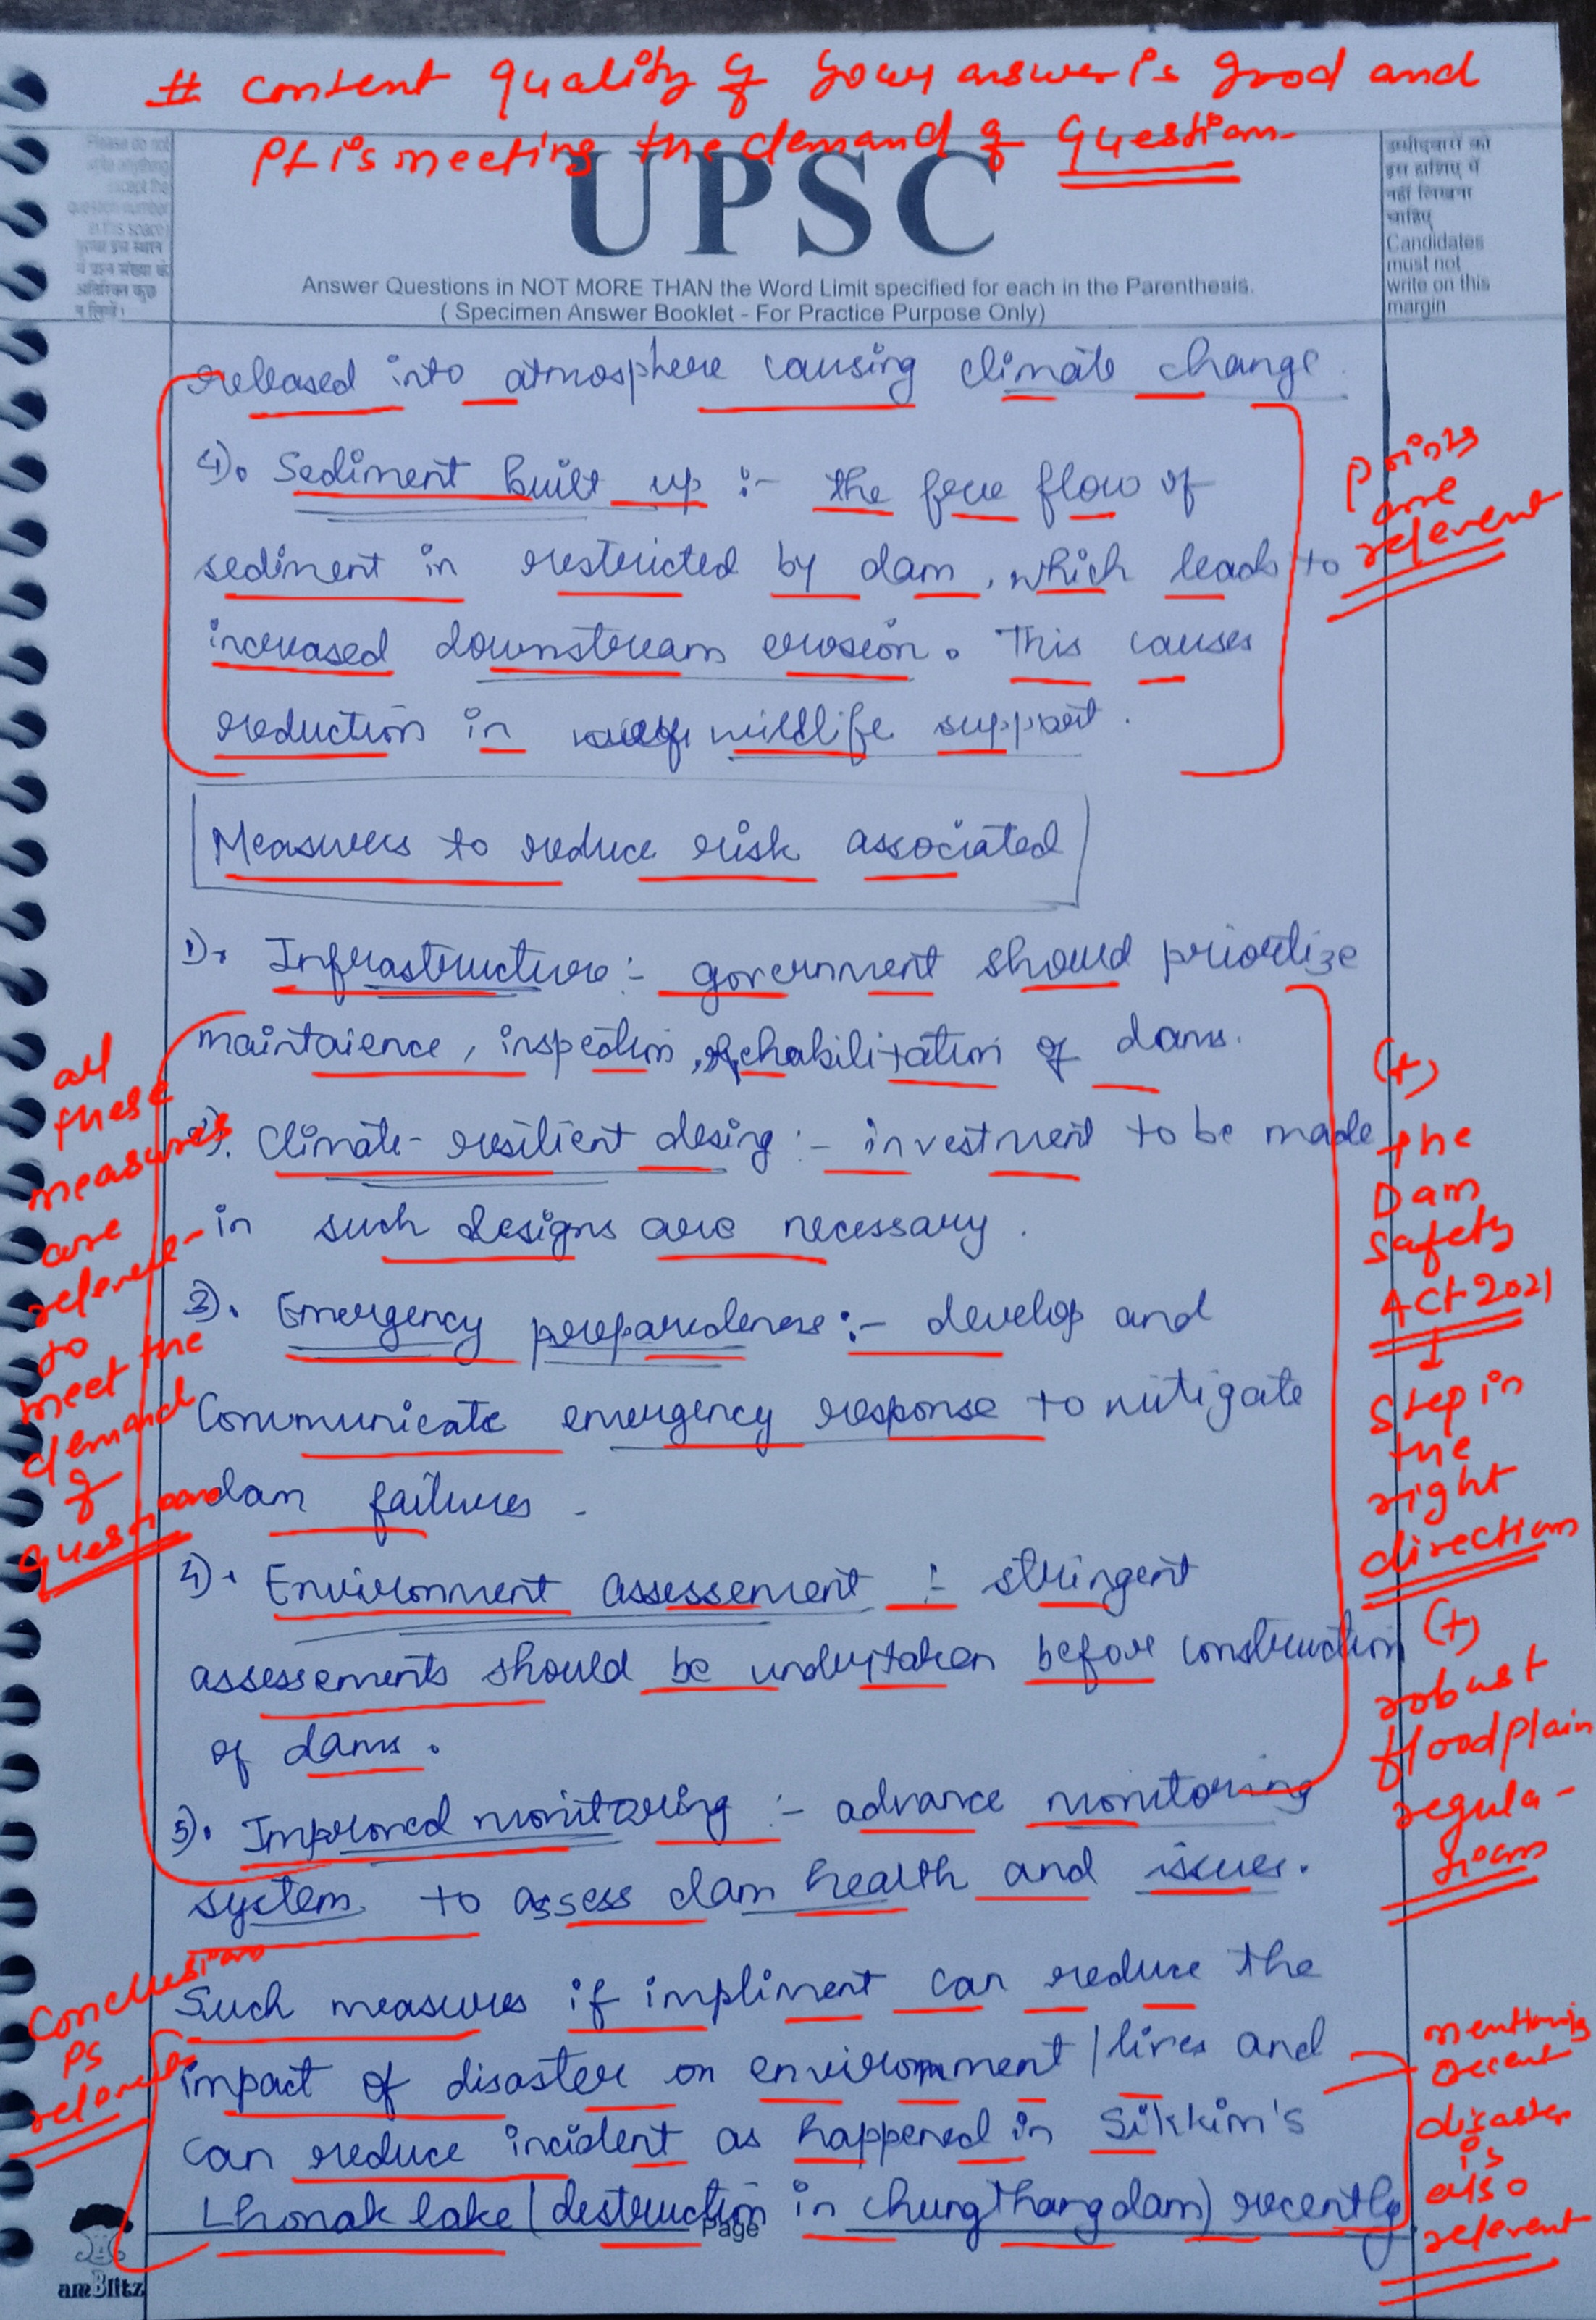 # Content quality of your answer is good and
it is meeting the demand of Question
Please do not
write anything
except the
question number
in this space
UPSC
Answer Questions in NOT MORE THAN the Word Limit specified for each in the Parenthesis.
( Specimen Answer Booklet - For Practice Purpose Only)
उम्मीदवारों को
इस हाशिए में
नहीं लिखना
चाहिए
Candidates
must not
write on this
margin
released into atmosphere causing climate change.
4). Sediment built up :- the free flow of
sediment in restricted by dam, which leads to
increased downstream erosion. This causes
reduction in wildlife support.
Points
are
relevent
Measures to reduce risk associated
1). Infrastructure :- government should priortize
maintaience, inspection, rehabilitation of dams.
2). Climate-resilient desing :- investment to be made
in such designs are necessary.
3). Emergency preparedeness :- develop and
Communicate emergency response to mitigate
dam failures.
4). Environment assessement :- stringent
assessements should be undertaken before construction
of dams.
5). Improved monitoring :- advance monitoring
system to assess dam health and issues.
all
these
measures
are
relevent
to
meet the
demand
of
question
(+)
the
Dam
Safety
Act 2021
↓
Step in
the
right
direction
(+)
robust
floodplain
regula-
tions
Such measures if impliment can reduce the
impact of disaster on environment / lives and
can reduce incident as happened in Sikkim's
Lhonak lake (destruction in chungthang dam) recently.
Conclusion
is
mentioning
recent
disaster
is
also
relevent
Page
amBlitz